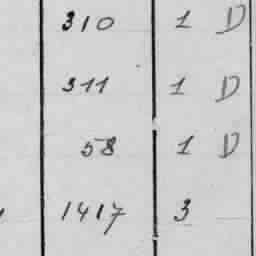 310 1 D
311 1 D
58 1 D
1417 3